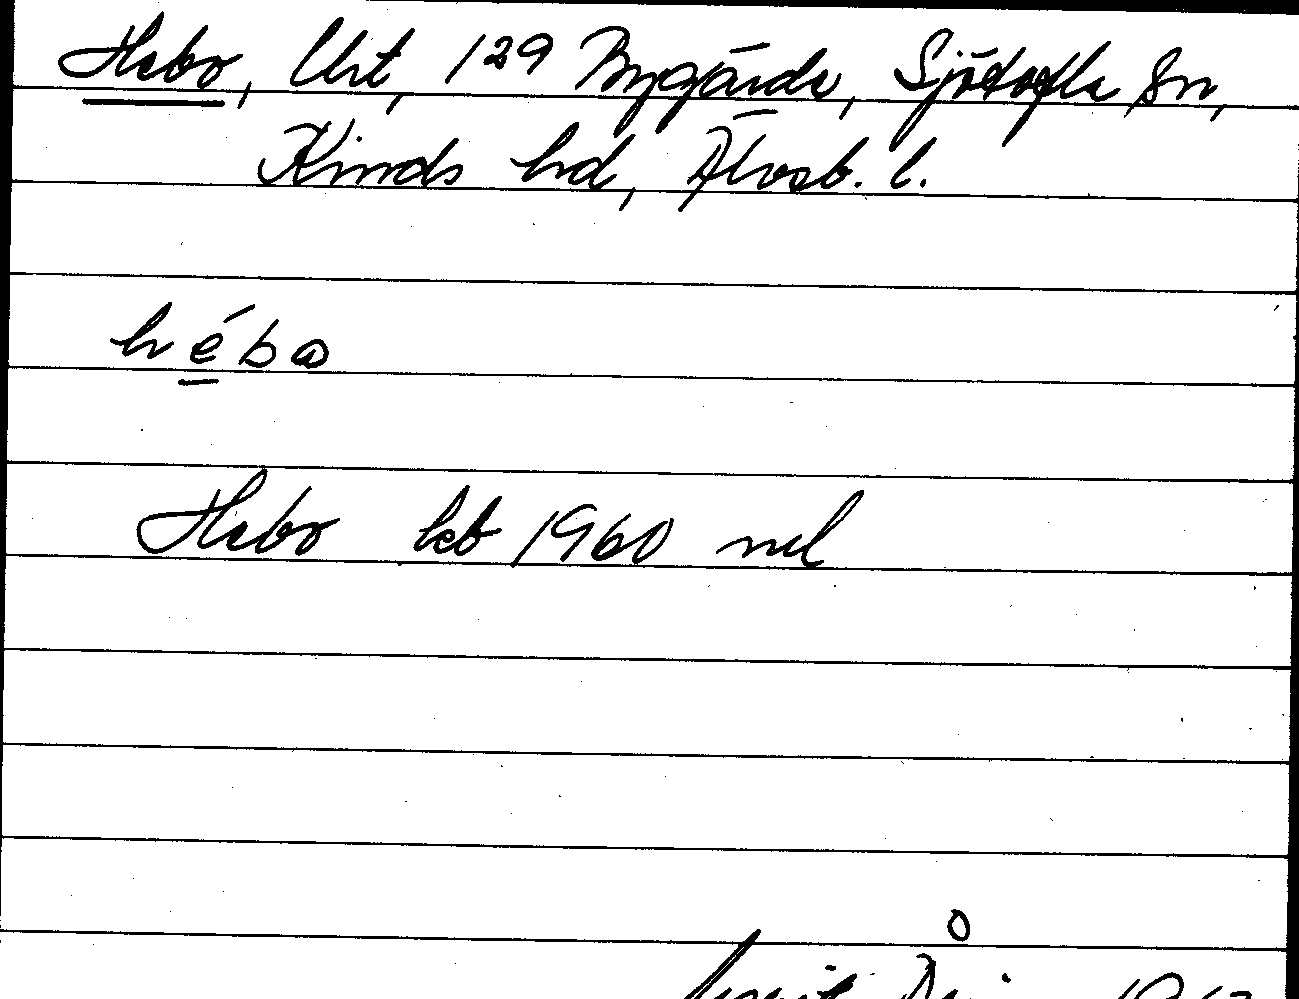 Hebo, Urt, 129 Bygärde, Sjötofta sn,
Kinds hd, Älvsb. l.
héba
Hebo kb 1960 nel